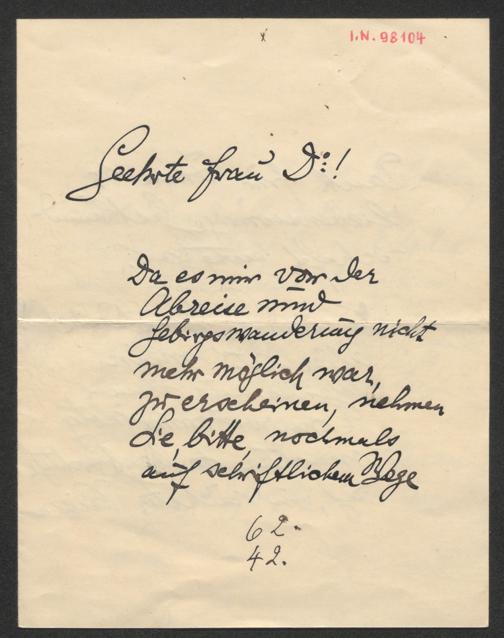 I.N. 98104
Geehrte Frau Dr.!
Da es mir vor der
Abreise und
Gebirgswanderung nicht
mehr möglich war,
zu erscheinen, nehmen
Sie, bitte, nochmals
auf schriftlichem Wege
62.
42.